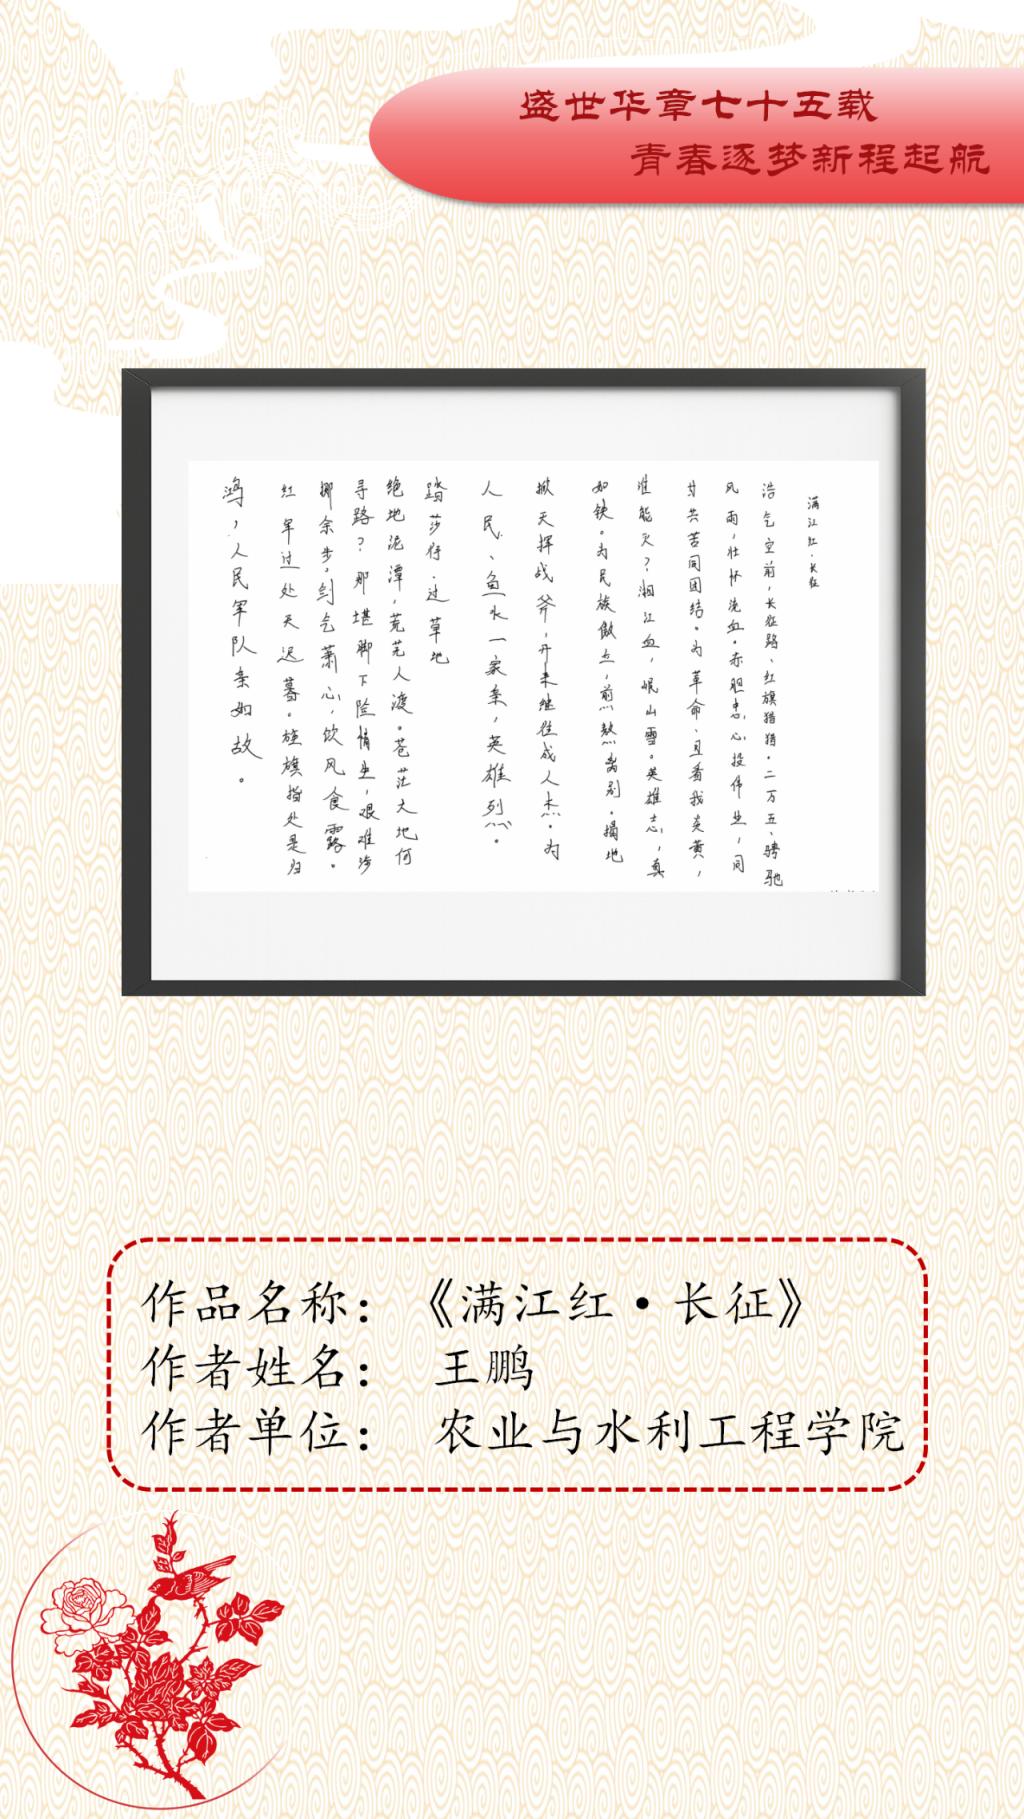 盛世华章七十五载
青春逐梦新程起航
满江红·长征
浩气空前，长征路、红旗猎猎。二万五、骋驰
风雨，壮怀浇血。赤胆忠心投伟业，同
甘共苦同团结。为革命、且看我炎黄，
谁能灭？湘江血，岷山雪。英雄志，真
如铁。为民族傲立，煎熬离别。揭地
掀天挥战斧，开来继往成人杰。为
人民、鱼水一家亲，英雄烈。
踏莎行·过草地
绝地泥潭，荒芜人渡。苍茫大地何
寻路？那堪脚下险情生，艰难涉
挪余步。剑气萧心，饮风食露。
红军过处天迟暮。旌旗指处是归
鸿，人民军队亲如故。
作品名称：《满江红·长征》
作者姓名： 王鹏
作者单位： 农业与水利工程学院